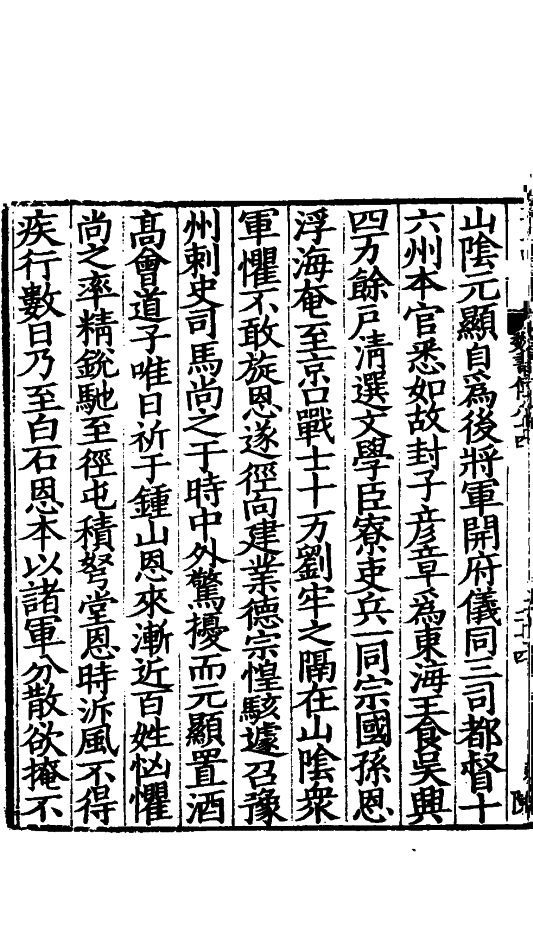 山陰元顯自爲後將軍開府儀同三司都督十
六州本官悉如故封子彦章爲東海王食吳興
四万餘戸清選文學臣寮吏兵一同宗國孫恩
浮海奄至京口戰士十万劉牢之隔在山陰衆
軍懼不敢旋恩遂徑向建業德宗惶駭遽召豫
州刺史司馬尚之于時中外驚擾而元顯置酒
髙會道子唯日祈于鍾山恩來漸近百姓忷懼
尚之率精銳馳至徑屯積弩堂恩時泝風不得
疾行數日乃至白石恩本以諸軍分散欲掩不